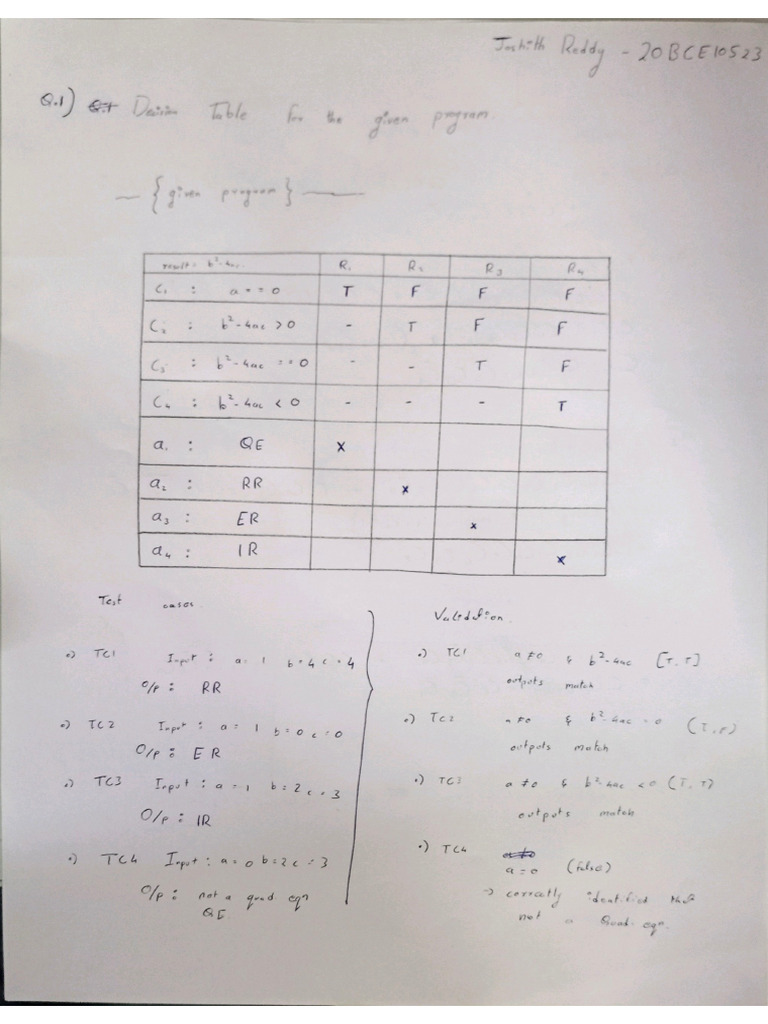 Joshith Reddy - 20BCE10523
Q.1) Decision Table for the given program.
{given program}
result: b²-4ac R₁ R₂ R₃ R₄
C₁ : a == 0 T F F F
C₂ : b²-4ac > 0 - T F F
C₃ : b²-4ac == 0 - - T F
C₄ : b²-4ac < 0 - - - T
a₁ : QE x
a₂ : RR x
a₃ : ER x
a₄ : IR x
Test cases
•) TC1 Input : a = 1 b = 4 c = 4
O/p : RR
•) TC2 Input : a = 1 b = 0 c = 0
O/p : ER
•) TC3 Input : a = 1 b = 2 c = 3
O/p : IR
•) TC4 Input : a = 0 b = 2 c = 3
O/p : not a quad. eqn
QE
Validation
•) TC1 a ≠ 0 & b²-4ac [T, T]
outputs match
•) TC2 a ≠ 0 & b²-4ac = 0 (T, F)
outputs match
•) TC3 a ≠ 0 & b²-4ac < 0 (T, T)
outputs match
•) TC4
a = 0 (false)
→ correctly identified that
not a Quad. eqn.